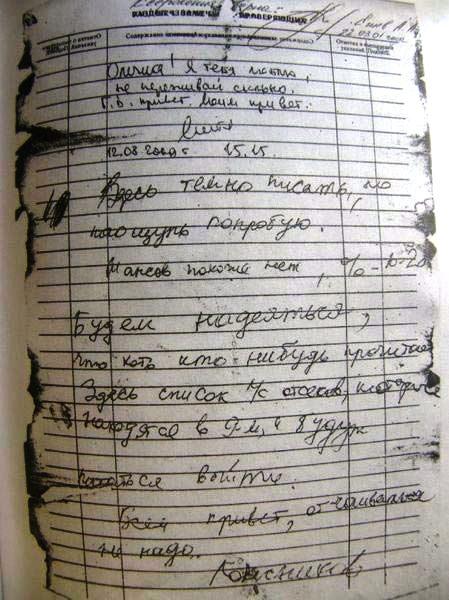 ПРОВЕРЯЮЩИХ
Олечка! Я тебя люблю,
не переживай сильно.
Г.В. привет. Моим привет.
12.08.2000г 15.15.
Здесь темно писать, но
наощупь попробую.
Шансов похоже нет, % - 10-20
Будем надеяться,
что хоть кто-нибудь прочитает
Здесь список л/с отсеков, которые
находятся в 9-м, и будут
пытаться выйти.
Всем привет, отчаиваться
не надо.
Колесников